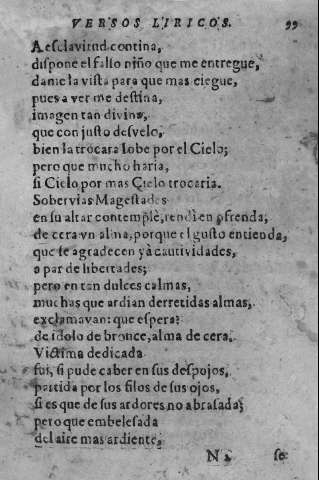 VERSOS LIRICOS. 99
A esclavitud contina,
dispone el falso niño que me entregue,
dame la vista para que mas ciegue,
pues a ver me destina,
imagen tan divina,
que con justo desvelo,
bien la trocara Iobe por el Cielo;
pero que mucho haria,
si Cielo por mas Cielo trocaria.
Sobervias Magestades
en su altar contemplè, rendi en ofrenda;
de cera vn alma, porque el gusto entienda,
que se agradecen yà cautividades,
a par de libertades;
pero en tan dulces calmas,
muchas que ardian derretidas almas,
exclamavan: que espera?
de idolo de bronce, alma de cera.
Victima dedicada
fui, si pude caber en sus despojos,
partida por los filos de sus ojos,
si es que de sus ardores no abrasada;
pero que embelesada
del aire mas ardiente,
N 3 se